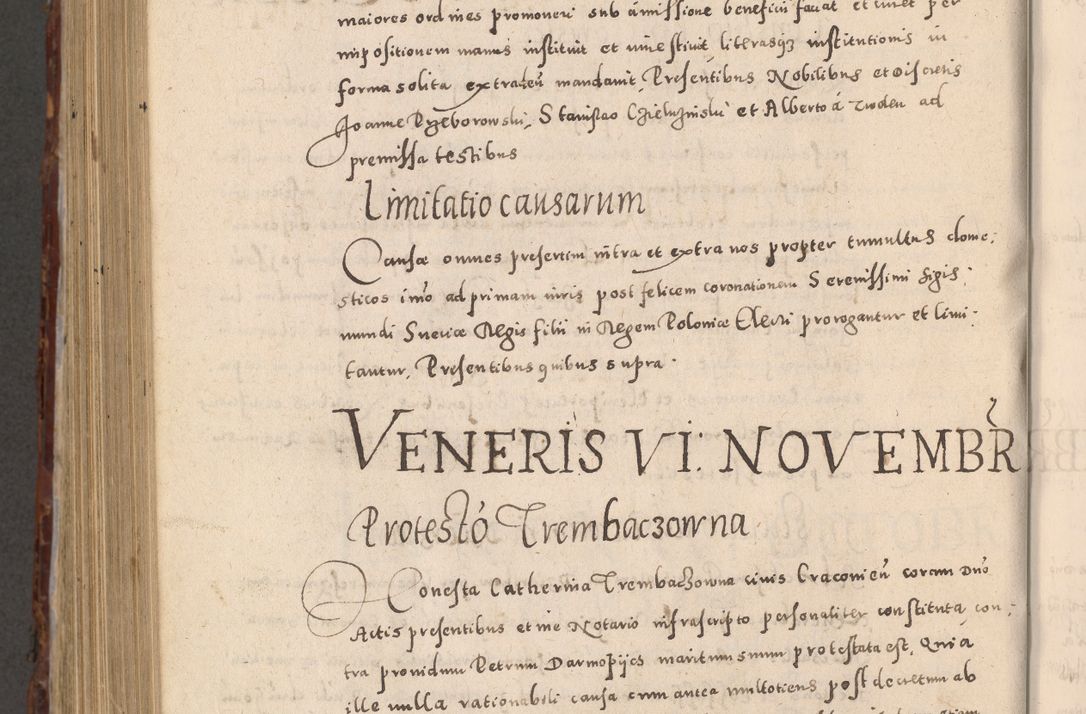 maiores ordines promoveri sub amissione beneficii faciat et curet per
impositionem manus instituit et investivit literasq3 institutionis in
forma solita extraden̄ mandavit, Presentibus Nobilibus et Discretis
Joanne Dzeborowski, Stanislao Chelminski et Alberto à ad
premissa testibus
Limitatio causarum
Causæ omnes presertim intra et extra nos propter tumultus dome:
sticos imo ad primam iuris post felicem coronationem Serenissimi Sigis:
mundi Sueciæ Regis filii in Regem Poloniæ Electi prorogantur et limi:
tantur, Presentibus quibus supra.
VENERIS VI: NOVEMBR
Protestó Trembaczowna
Honesta Catherina Trembaczowna civis Cracovien̄ coram Dnō
Actis presentibus et me Notario infrascripto personaliter constituta con:
tra providum Petrum Darmopijcs maritum suum protestata est, Quia
ille nulla rationabili causa cum antea multotiens post decretum ab